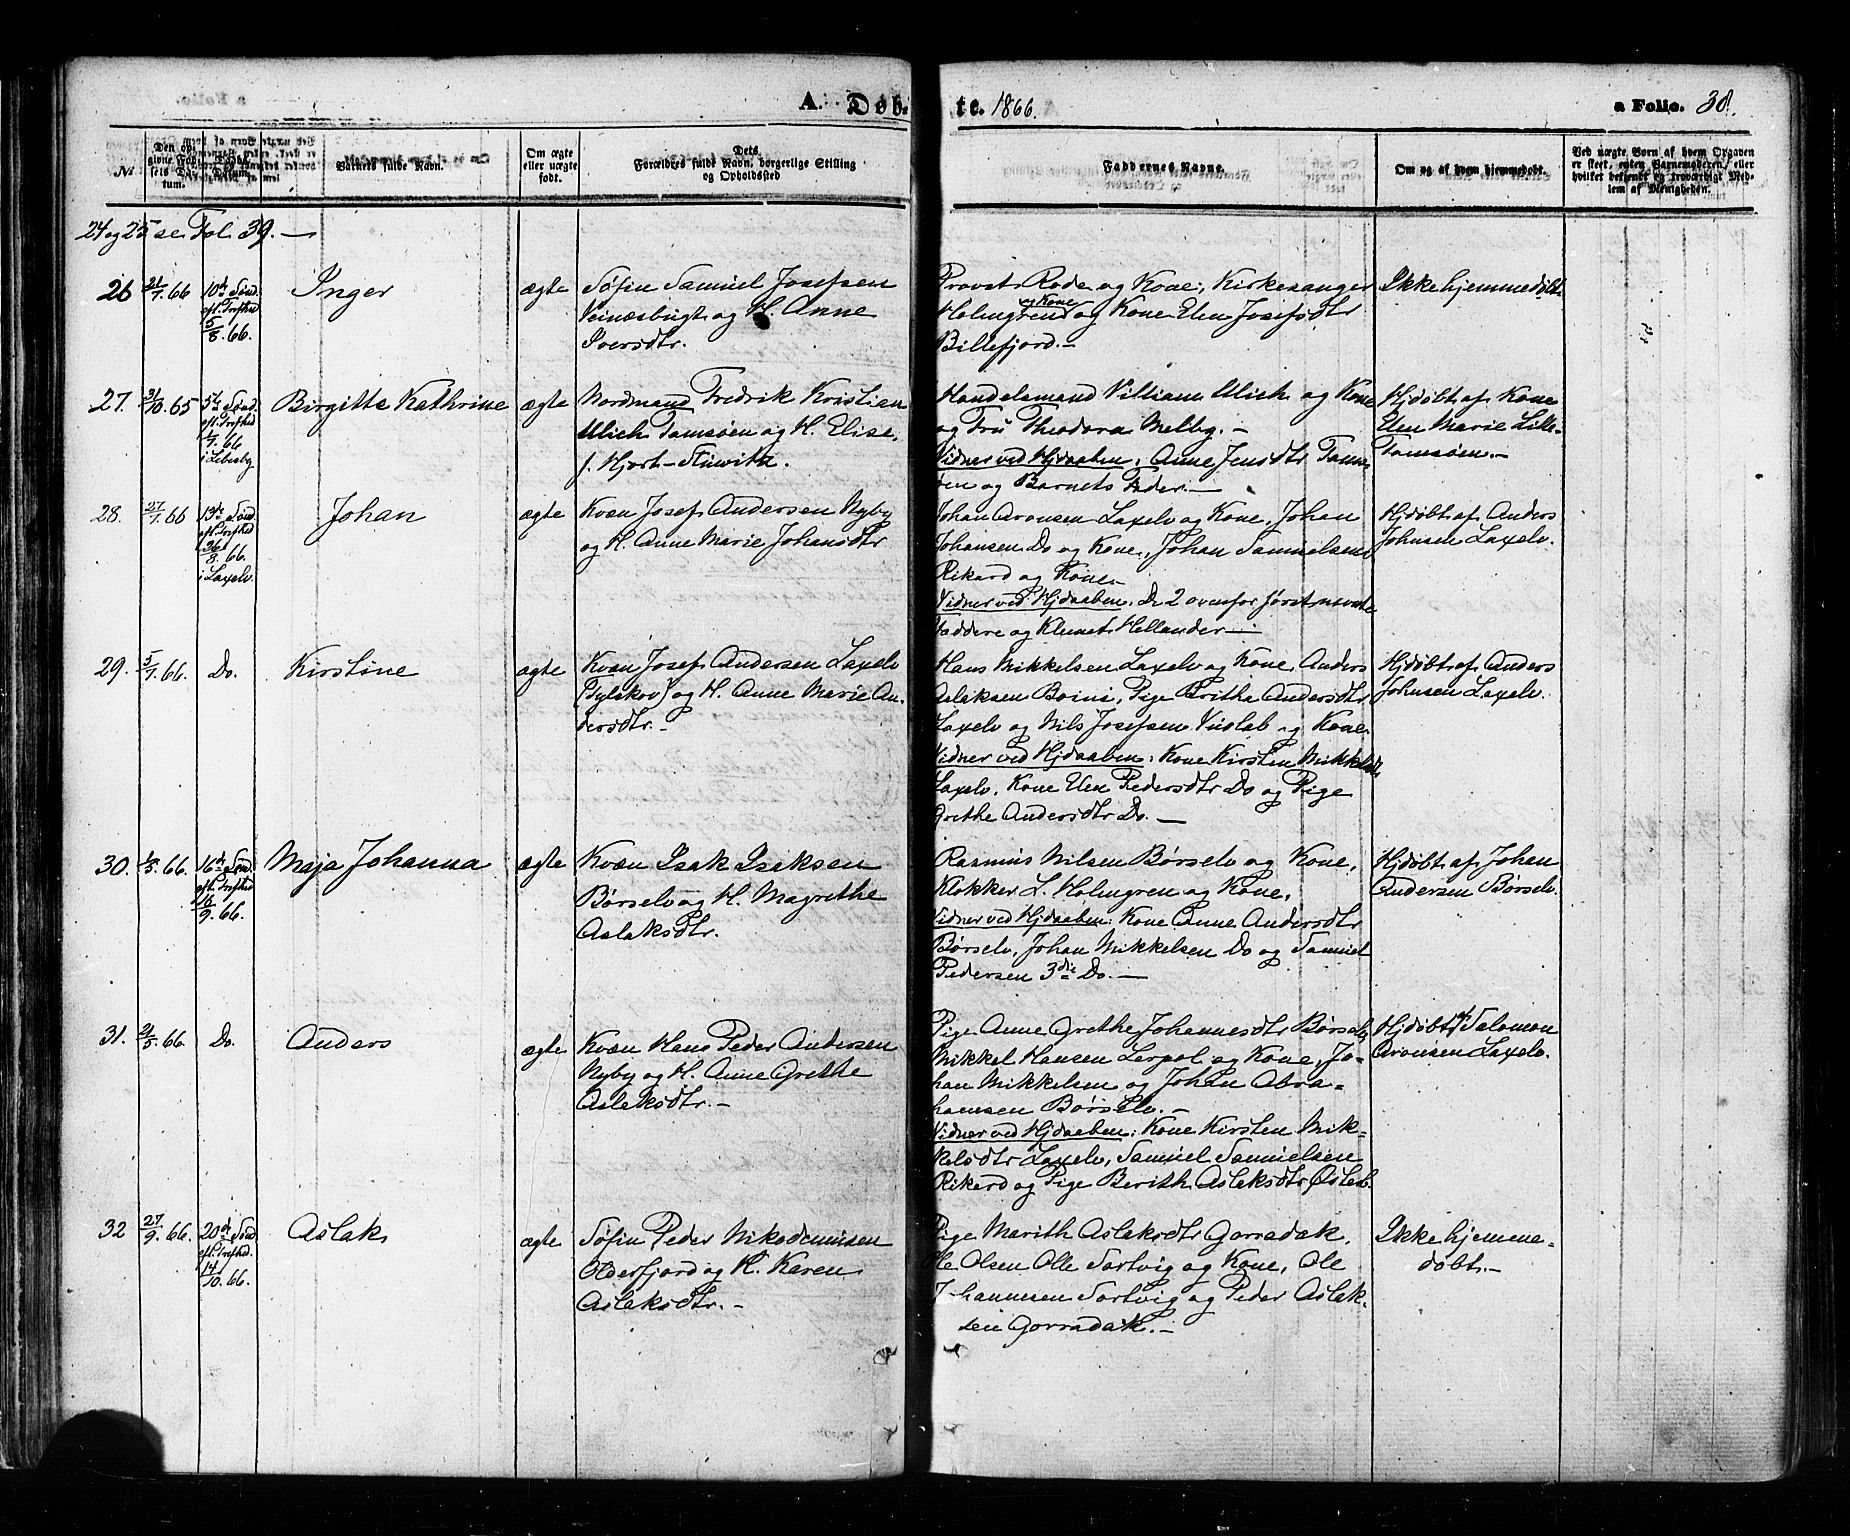 A. Døb-
te. 1866.
a Folio. 38.
No
Barnets fulde Navn.
Om ægte
eller uægte
født.
Dets
Forældres fulde Navn, borgerlige Stilling
og Opholdssted
Faddernes Navne.
Om og af hvem hjemmedøbt.
Ved uægte Børn af hvem Opgaven
er skeet, enten Barnemoderen, eller
hvilket bekjendt og troværdigt Med-
lem af Menigheden.
24 og 25 se Fol. 39. —
26
21/7. 66
10de Sønd.
eft. Trefhed
5/8. 66.
Inger
ægte
Søfin Samuel Josefsen
Veinæsbugt og H. Anne
Iversdtr.
Provst Rode og Kone, Kirkesanger
og Kone
Holmgren og Kone Elen Josefsdtr
Billefjord.—
Ikke hjemmedøbt
27.
31/10. 65
5te Sønd.
eft. Trefhed
1/7. 66
i Lebesby
Birgitte Kathrine
ægte
Nordmand Fredrik Kristian
Ulich Tamsøen og H. Elise,
f. Hjort-Stuwitz.
Handelsmand Villiam Ulich og Kone
og Fru Theodora Melby.—
Vidner ved Hjdaaben: Anne Jensdtr Tam-
søen og Barnets Fader.—
Hjdøbt af Kone
Elen Marie Lille-
Tamsøen.—
28.
27/7. 66
13de Sønd.
eft. Trefhed
26/8. 66.
i Laxelv.
Johan
ægte
Kvæn Josef Andersen Nyby
og H. Anne Marie Johansdtr
Johan Aronsen Laxelv og Kone, Johan
Johansen Do og Kone, Johan Samuelsen
Rikard og Kone.—
Vidner ved Hjdaaben: De 2 ovenfor først nævnte
Faddere og Klemet Hellander—
Hjdøbt af Anders
Johnsen Laxelv.
29.
5/7. 66.
Do.
Kirstine
ægte
Kvæn Josef Andersen Laxelv
(Pylskov) og H. Anne Marie An-
dersdtr.—
Hans Mikkelsen Laxelv og Kone, Anders
Aslaksen Boini, Pige Brithe Andersdtr
Laxelv og Nils Josefsen Vuolab og Kone
Vidner ved Hjdaaben: Kone Kirsten Mikkelsdtr
Laxelv, Kone Elen Pedersdtr Do og Pige
Grethe Andersdtr Do.—
Hjdøbt af Anders
Johnsen Laxelv.
30.
1/5. 66.
16de Sønd.
eft. Trefhed
16/9. 66.
Maja Johanna
ægte
Kvæn Isak Isaksen
Børselv og H. Magrethe
Aslaksdtr.
Rasmus Nilsen Børselv og Kone,
Klokker L. Holmgren og Kone,
Vidner ved Hjdaaben: Kone Anne Andersdtr
Børselv, Johan Mikkelsen Do og Samuel
Pedersen 3die Do.—
Hjdøbt af Johan
Andersen Børselv.
31.
21/5. 66.
Do.
Anders
ægte
Kvæn Hans Peder Andersen
Nyby og H. Anne Grethe
Aslaksdtr.—
Pige Anne Grethe Johannesdtr Børselv
Mikkel Hansen Lerpol og Kone, Jo-
han Mikkelsen og Johan Abra-
hamsen Børselv.—
Vidner ved Hjdaaben: Kone Kirsten Mik-
kelsdtr Laxelv, Samuel Samuelsen
Rikard og Pige Berith Aslaksdtr
Hjdøbt af Salomon
Aronsen Laxelv.
32
27/9. 66.
20de Sønd
eft. Trefhed.
14/10. 66.
Aslak
ægte
Søfin Peder Nikodemusen
Olderfjord og H. Karen
Aslaksdtr.—
Pige Marith Aslaksdtr Gorradak,
Ole Olsen Olle Sortvig og Kone, Ole
Johannesen Sortvig og Peder Aslak-
sen Gorradak.—
Ikke hjemme-
døbt.—